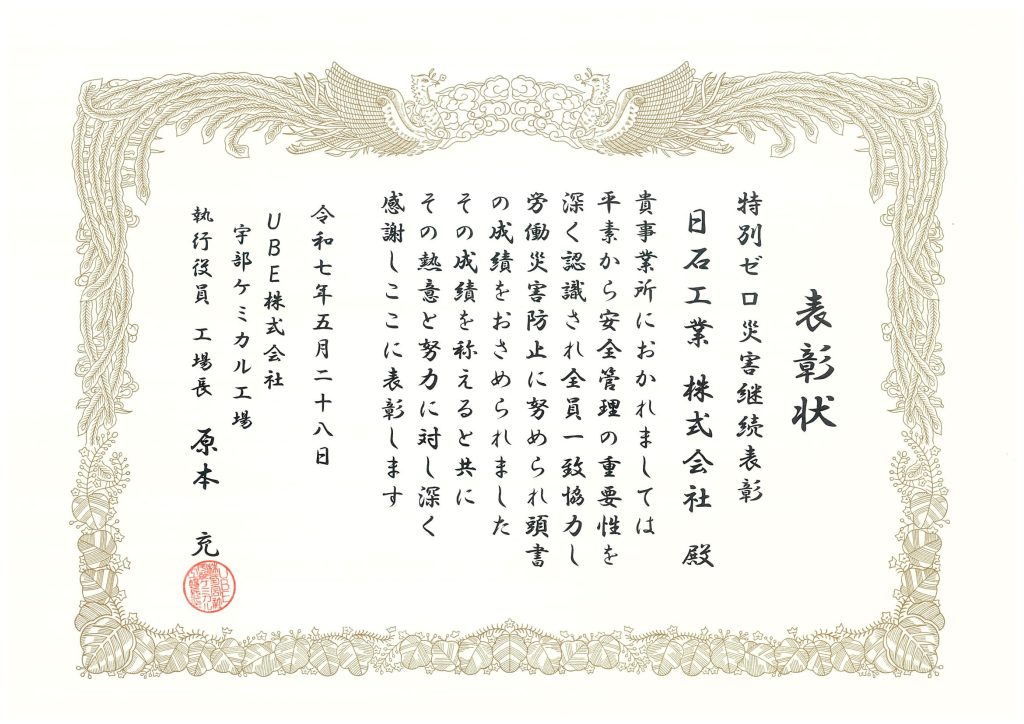 表彰状
特別ゼロ災害継続表彰
日石工業 株式会社 殿
貴事業所におかれましては
平素から安全管理の重要性を
深く認識され全員一致協力し
労働災害防止に努められ頭書
の成績をおさめられました
その成績を称えると共に
その熱意と努力に対し深く
感謝しここに表彰します
令和七年五月二十八日
UBE株式会社
宇部ケミカル工場
執行役員 工場長 原本 充